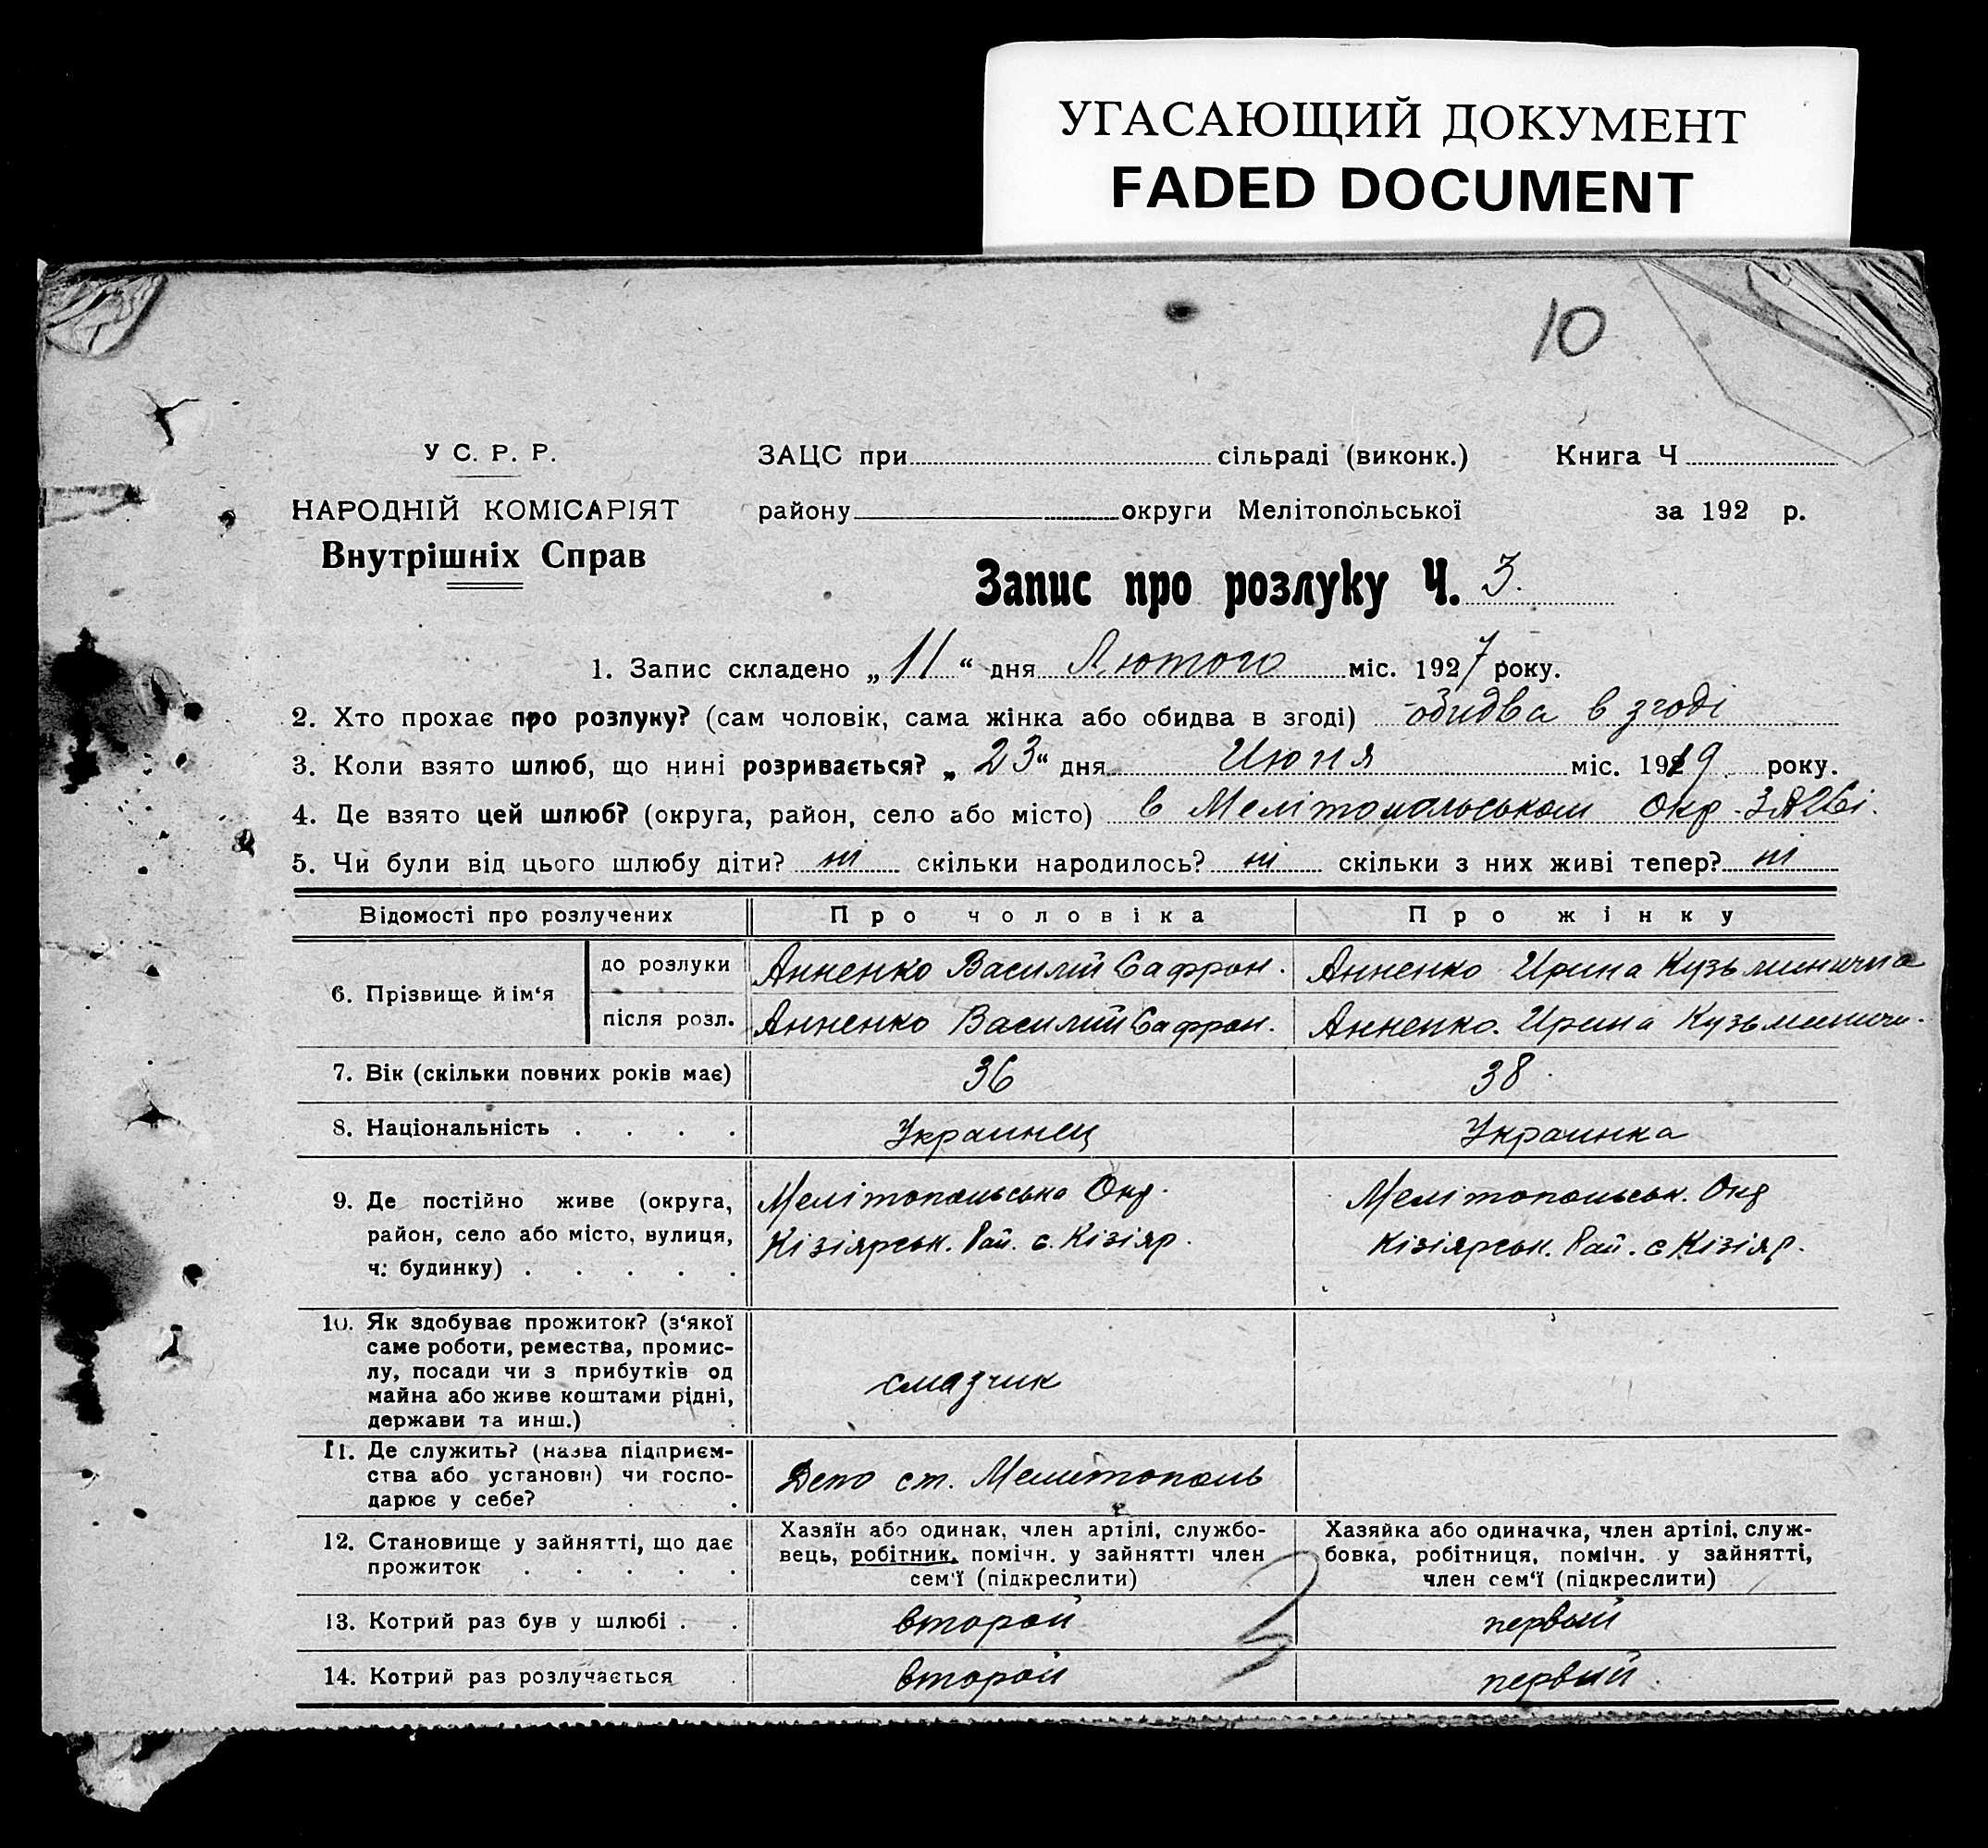 УГАСАЮЩИЙ ДОКУМЕНТ
FADED DOCUMENT
10
У С. Р. Р.
НАРОДНІЙ КОМІСАРІЯТ
Внутрішніх Справ
ЗАЦС при сільраді (виконк.) Книга Ч
району округи Мелітопольської за 192 р.
Запис про розлуку Ч. 3.
1. Запис складено „11“ дня Лютого міс. 1927 року.
2. Хто прохає про розлуку? (сам чоловік, сама жінка або обидва в згоді) обидва в згоді
3. Коли взято шлюб, що нині розривається? „23“ дня Июня міс. 1919 року.
4. Де взято цей шлюб? (округа, район, село або місто) в Мелітопольськом Окр.
5. Чи були від цього шлюбу діти? ні скільки народилось? ні скільки з них живі тепер? ні
Відомості про розлучених Про чоловіка Про жінку
6. Прізвище й ім‘я
до розлуки Анненко Василий Сафрон. Анненко Ирина Кузьминична
після розл. Анненко Василий Сафрон. Анненко. Ирина Кузьминичн.
7. Вік (скільки повних років має) 36 38
8. Національність Украинец Украинка
9. Де постійно живе (округа,
район, село або місто, вулиця,
ч. будинку)
Мелітопольська Окр.
Кізіярськ. Рай. с. Кізіяр.
Мелітопольськ. Окр
Кізіярськ. Рай. с Кізіяр.
10. Як здобуває прожиток? (з‘якої
саме роботи, ремества, промис-
лу, посади чи з прибутків од
майна або живе коштами рідні,
держави та инш.)
смазчик
11. Де служить? (назва підприєм-
ства або установи) чи госпо-
дарює у себе?
Депо ст. Мелитополь
12. Становище у зайнятті, що дає
прожиток
Хазяїн або одинак, член артілі, службо-
вець, робітник, помічн. у зайнятті член
сем‘ї (підкреслити)
Хазяйка або одиначка, член артілі, служ-
бовка, робітниця, помічн. у зайнятті,
член сем‘ї (підкреслити)
13. Котрий раз був у шлюбі второй первый
14. Котрий раз розлучається второй первый.